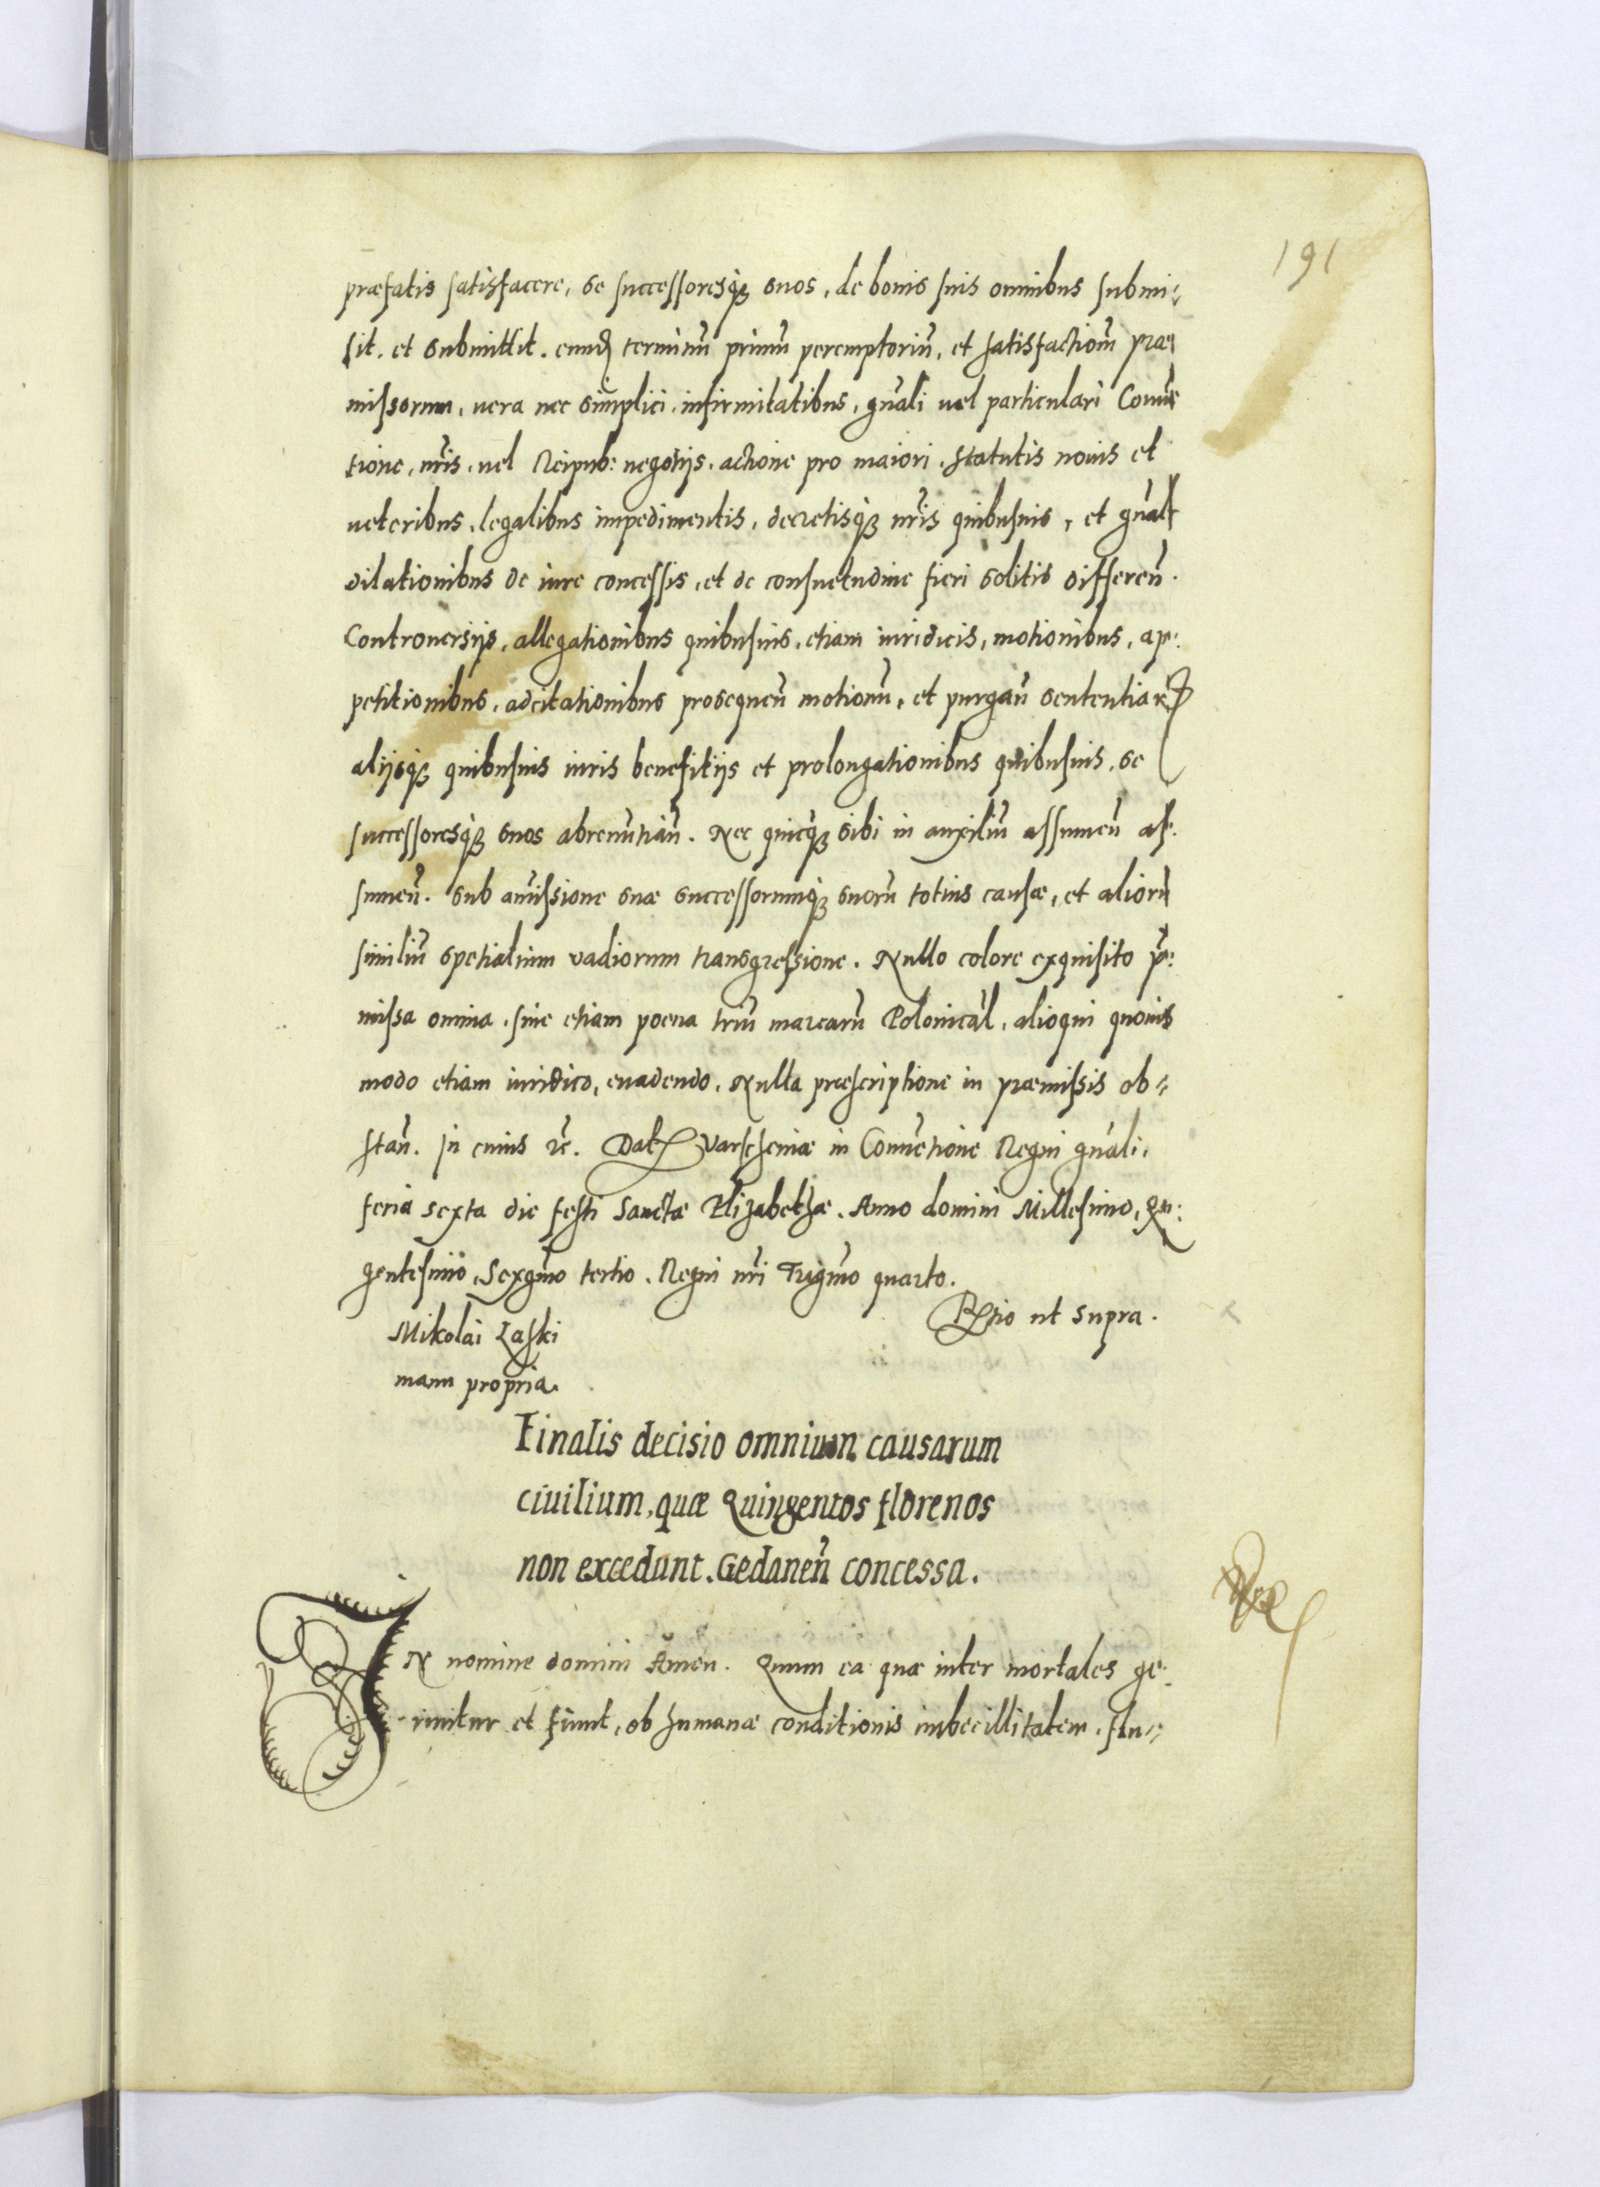 191
præfatis satisfacere, se successoresq; suos, de bonis suis omnibus submi-
sit. et submittit. eund terminũ primũ peremptoriũ, et satisfactioñ præ
missorum, vera nec simplici infirmitatibus, gñali uel particulari Conuẽ
tione, nr̃is, uel Reipub: negotijs. actione pro maiori. statutis nouis et
ueteribus, legalibus impedimentis, decretisq; nr̃is quibusuis, et gñal
dilationibus de iure concessis, et de consuetudine fieri solitis differeñ.
Controuersijs, allegationibus quibusuis, etiam iuridicis, motionibus, ap:
petitionibus, adcitationibus prosequeñ motionũ, et purgañ sententiar
aliisq; quibusuis iuris benefitijs et prolongationibus quibusuis, se
successoresq; suos abrenũtiañ. Nec quicq; sibi in auxiliũ assumeñ as:
sumeñ. sub amissione suæ successorumq; suorũ totius causæ, et aliorũ
similiũ spetialium vadiorum transgressione. Nullo colore exquisito p̃:
missa omnia. sine etiam poena triũ marcarũ Polonical, alioqui quouis
modo etiam iuridico, euadendo. Nulla præscriptione in præmissis ob-
stañ. In cuius rẽ. Dat Varscheuiæ in Conuẽtione Regni gñali,
feria sexta die festi Sanctæ Elizabethæ. Anno domini Millesimo, Qn:
gentesimo, Sexgm̃o tertio. Regni nr̃i Trigm̃o quarto.
Rtio ut supra.
Mikolai Laski
manu propria.
Finalis decisio omnium causarum
ciuilium, quæ Quingentos florenos
non excedunt. Gedaneñ concessa.
IN nomine domini Amen. Quum ea quæ inter mortales ge:
runtur et fiunt, ob humanæ conditionis imbecillitatem, flu-